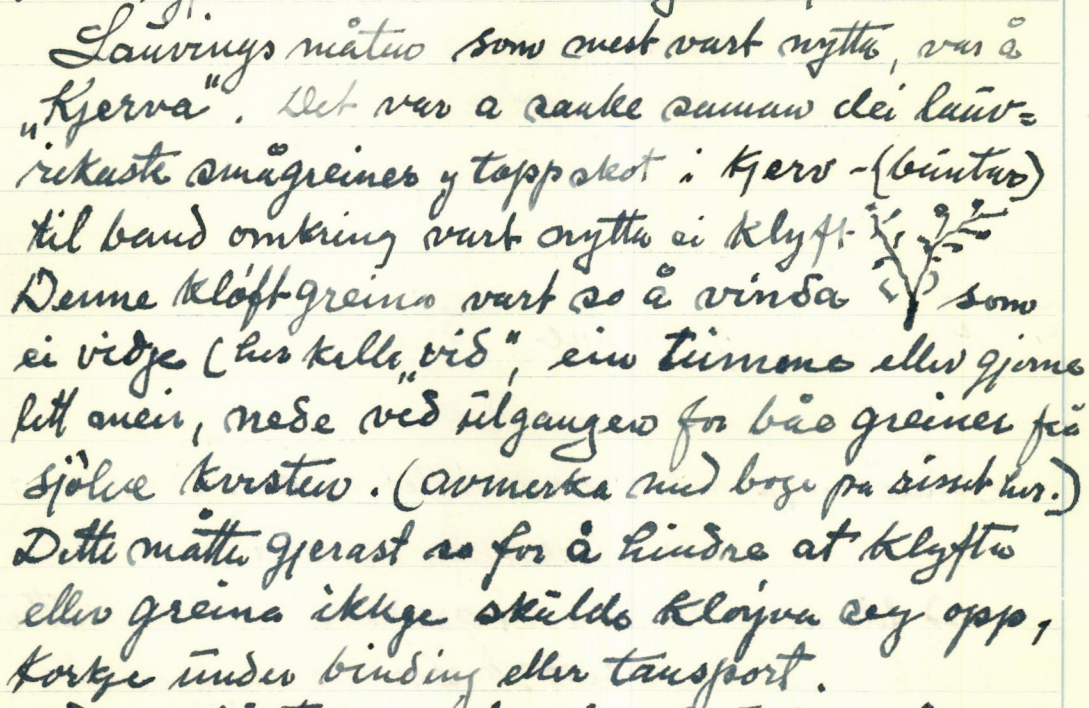 Lauvings måten som mest vart nytta, var å
„Kjerva". Det var a sanke saman dei lauv=
rikaste smågreiner og toppskot i Kjerv - (buntar)
til band omkring vart nytta ei Klyft
Denne kløft greina vart so å vinda som
ei vidje (her kalla „vid", ein tumme eller gjerne
litt meir, nede ved ulgangen for båe greiner frå
sjølve kvisten. (avmerka med boge på risset her.)
Dette måtte gjerast so for å hindre at Klyfta
eller greina ikkge skulde kløyva seg opp,
Korkje under binding eller tansport.